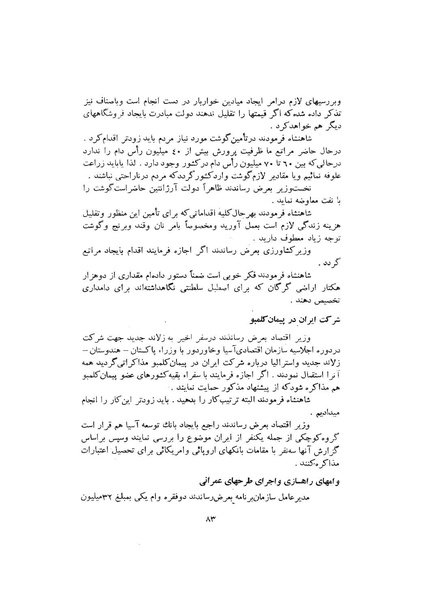 وبررسیهای لازم درامر ایجاد میادین خواربار در دست انجام است وباصناف نیز
تذکر داده شده که اگر قیمتها را تقلیل ندهند دولت مبادرت بایجاد فروشگاههای
دیگر هم خواهدکرد .
شاهنشاه فرمودند درتأمین گوشت مورد نیاز مردم باید زودتر اقدام کرد .
درحال حاضر مراتع ما ظرفیت پرورش بیش از ۴۰ میلیون رأس دام را ندارد
درحالی که بین ۶۰ تا ۷۰ میلیون رأس دام درکشور وجود دارد . لذا بایاید زراعت
علوفه نمائیم ویا مقادیر لازم گوشت واردکشور گرددکه مردم درناراحتی نباشند .
نخست وزیر بعرض رساندند ظاهراً دولت آرژانتین حاضراست گوشت را
با نفت معاوضه نماید .
شاهنشاه فرمودند بهرحال کلیه اقداماتی که برای تأمین این منظور وتقلیل
هزینه زندگی لازم است بعمل آورید ومخصوصاً بامر نان وقند وبرنج وگوشت
توجه زیاد معطوف دارید .
وزیرکشاورزی بعرض رساندند اگر اجازه فرمایند اقدام بایجاد مراتع
گردد .
شاهنشاه فرمودند فکر خوبی است ضمناً دستور داده‌ام مقداری از دوهزار
هکتار اراضی گرگان که برای اصطبل سلطنتی نگاهداشته‌اند برای دامداری
تخصیص دهند .
شرکت ایران در پیمان کلمبو
وزیر اقتصاد بعرض رساندند درسفر اخیر به زلاند جدید جهت شرکت
دردوره اجلاسیه سازمان اقتصادی آسیا وخاوردور با وزراء پاکستان – هندوستان –
زلاند جدید واسترالیا درباره شرکت ایران در پیمان کلمبو مذاکراتی گردید همه
آنرا استقبال نمودند . اگر اجازه فرمایند با سفراء بقیه کشورهای عضو پیمان کلمبو
هم مذاکره شود که از پیشنهاد مذکور حمایت نمایند .
شاهنشاه فرمودند البته ترتیب کار را بدهید . باید زودتر این کار را انجام
میدادیم .
وزیر اقتصاد بعرض رساندند راجع بایجاد بانک توسعه آسیا هم قرار است
گروه کوچکی از جمله یکنفر از ایران موضوع را بررسی نمایند وسپس براساس
گزارش آنها سه نفر با مقامات بانکهای اروپائی وامریکائی برای تحصیل اعتبارات
مذاکره کنند .
وامهای راهسازی واجرای طرحهای عمرانی
مدیرعامل سازمان برنامه بعرض رساندند دوفقره وام یکی بمبلغ ۳۲ میلیون
۸۳